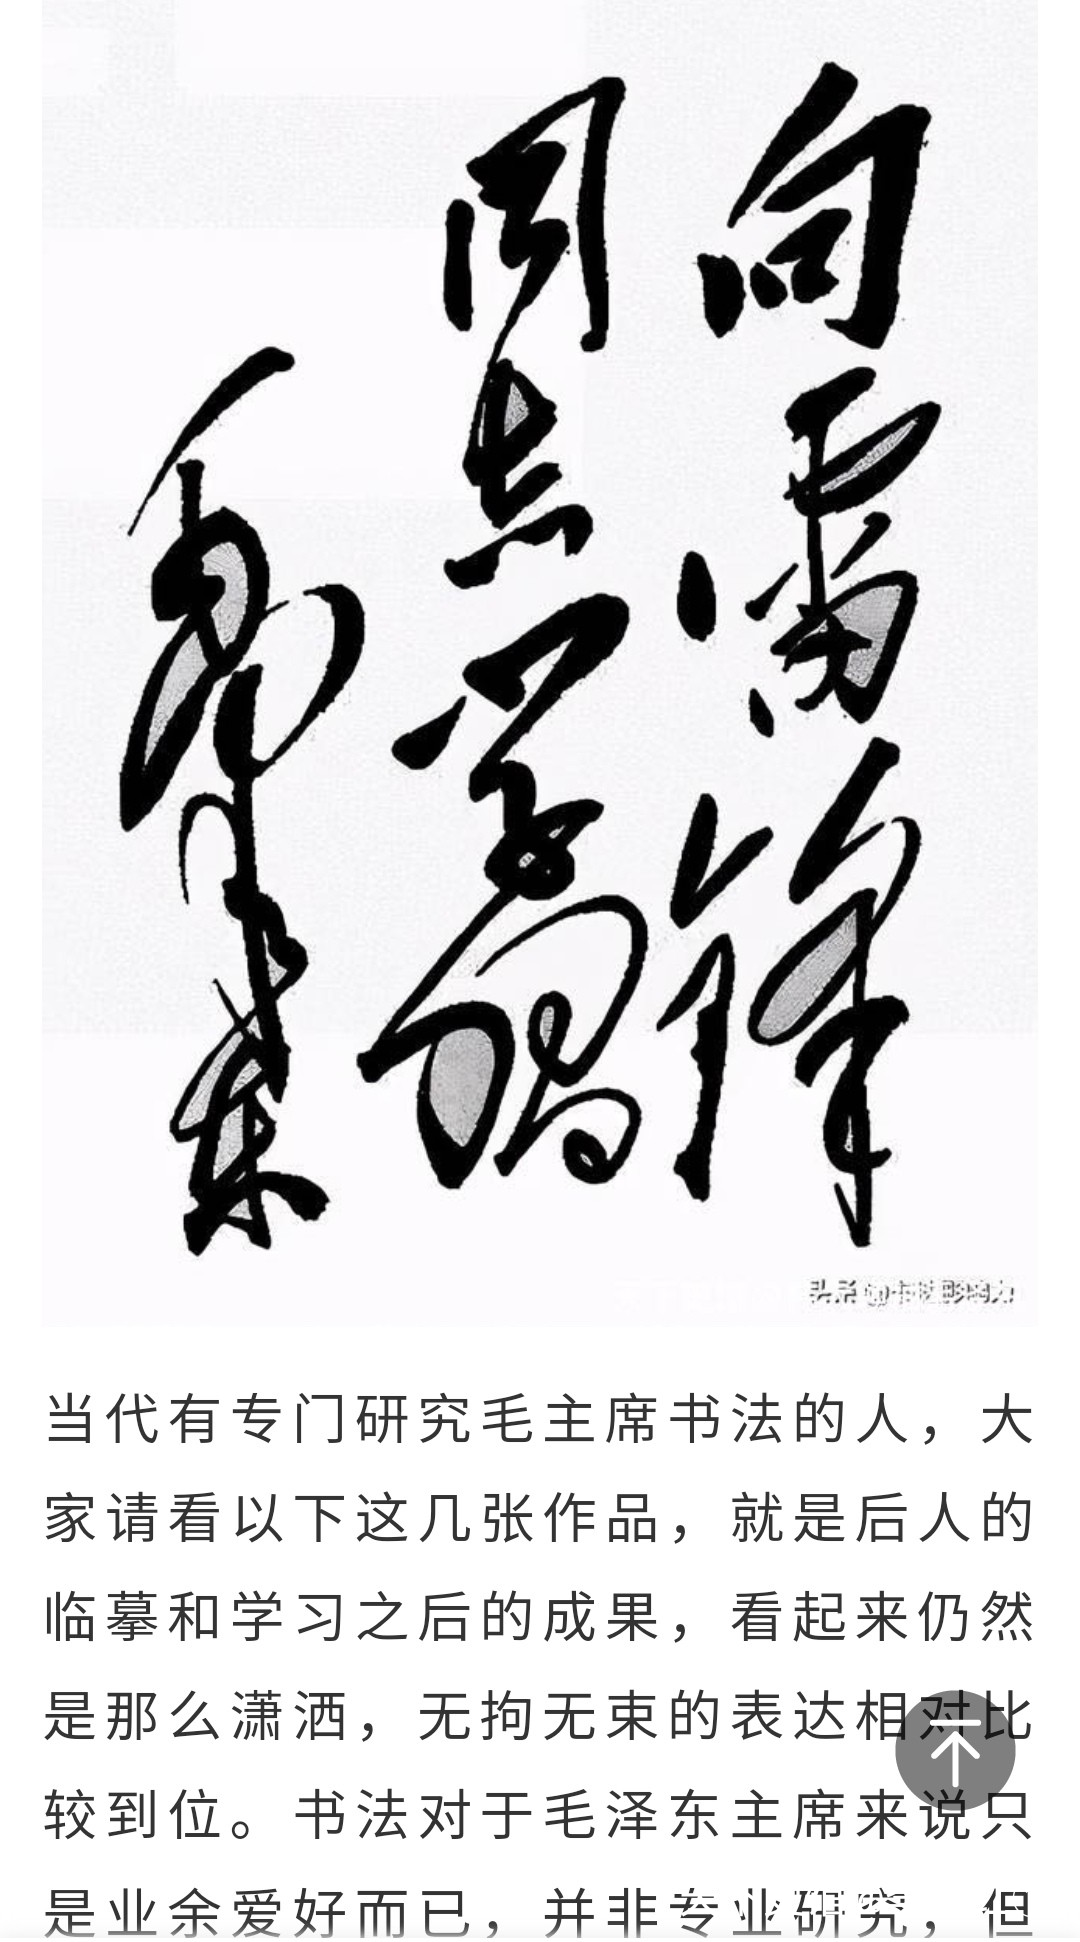 向雷锋
同志学习
毛泽东
当代有专门研究毛主席书法的人，大
家请看以下这几张作品，就是后人的
临摹和学习之后的成果，看起来仍然
是那么潇洒，无拘无束的表达相对比
较到位。书法对于毛泽东主席来说只
是业余爱好而已，并非专业研究，但